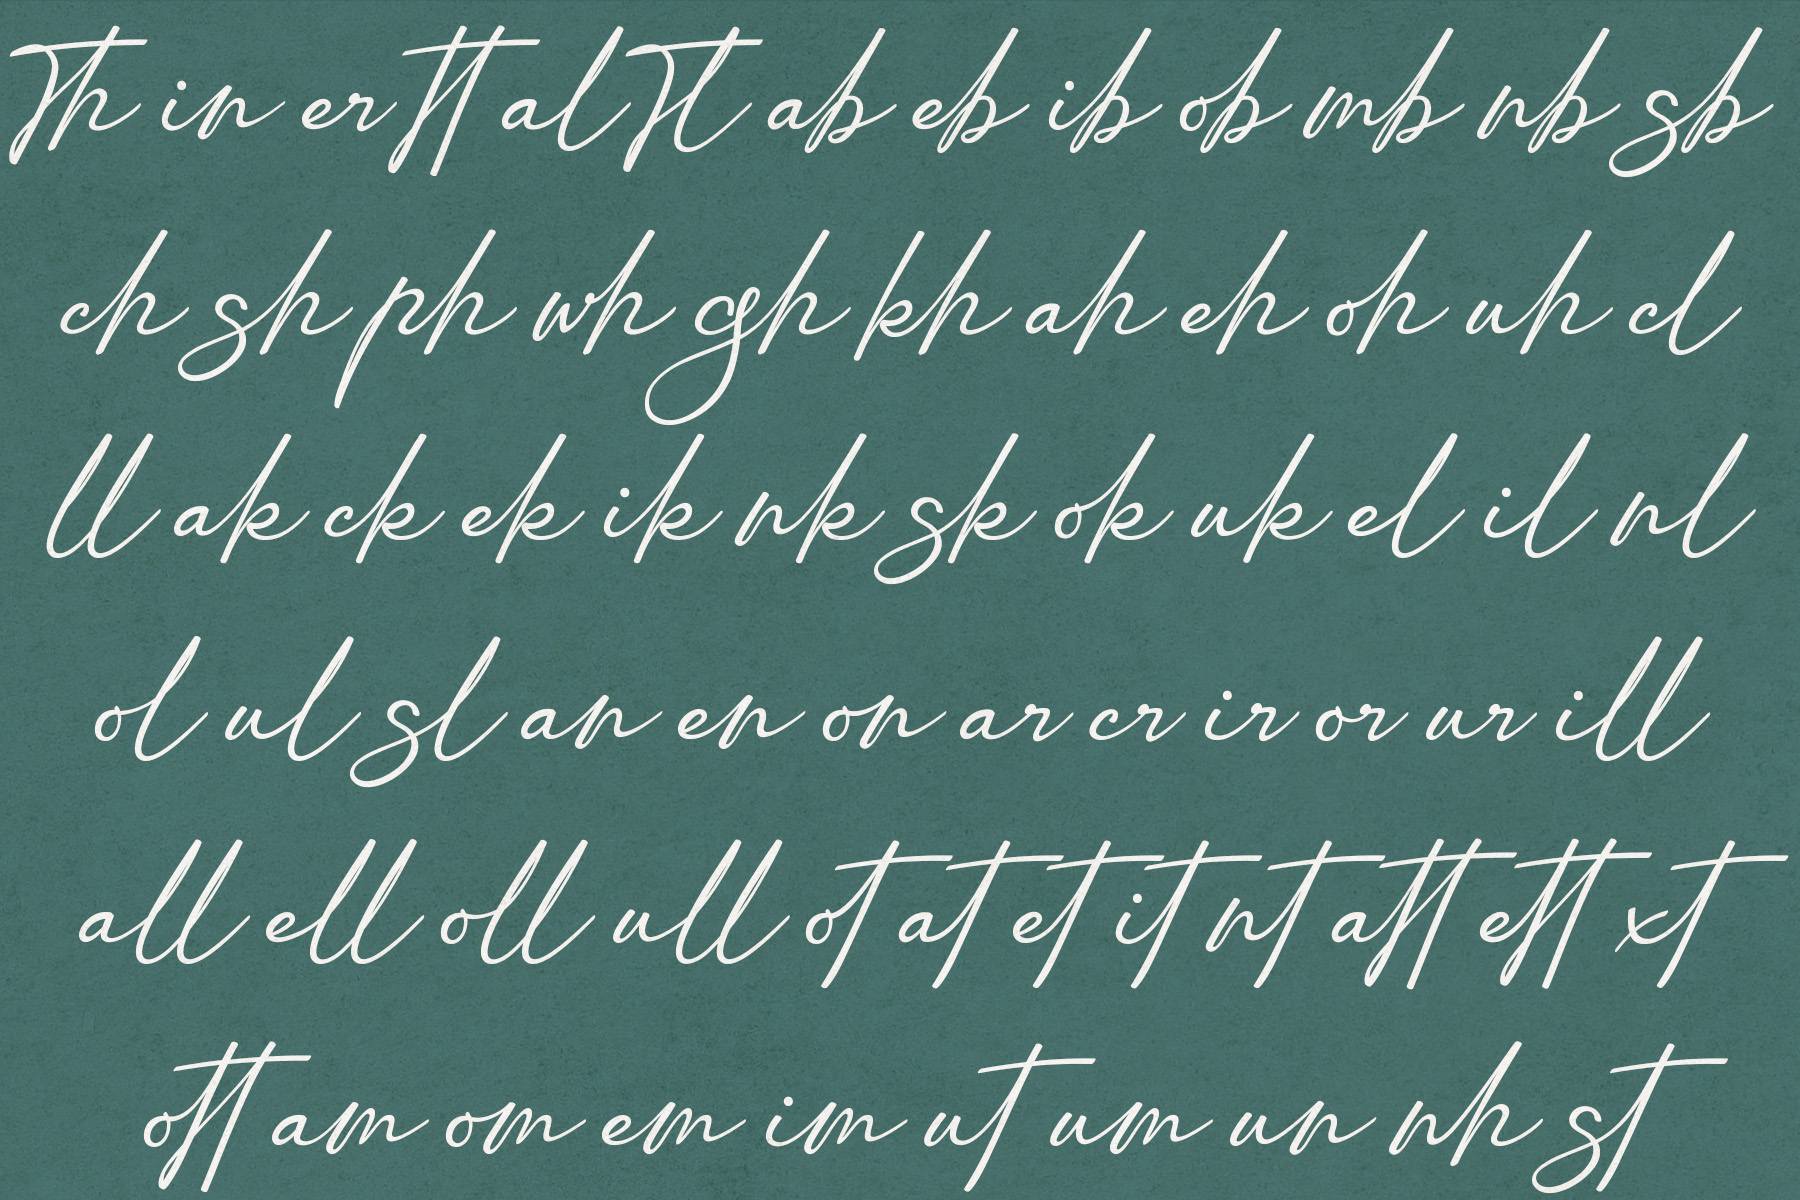 Th in er tt al Tl ab eb ib ob mb nb sb
ch sh ph wh gh kh ah eh oh uh cl
ll ak ck ek ik nk sk ok uk el il nl
ol ul sl an en on ar cr ir or ur ill
all ell oll ull ot at et it nt att ett xt
ott am om em im ut um un nh st